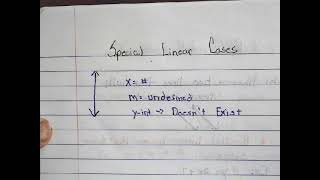 Special Linear Cases
x = #
m = undefined
y-int → Doesn't Exist